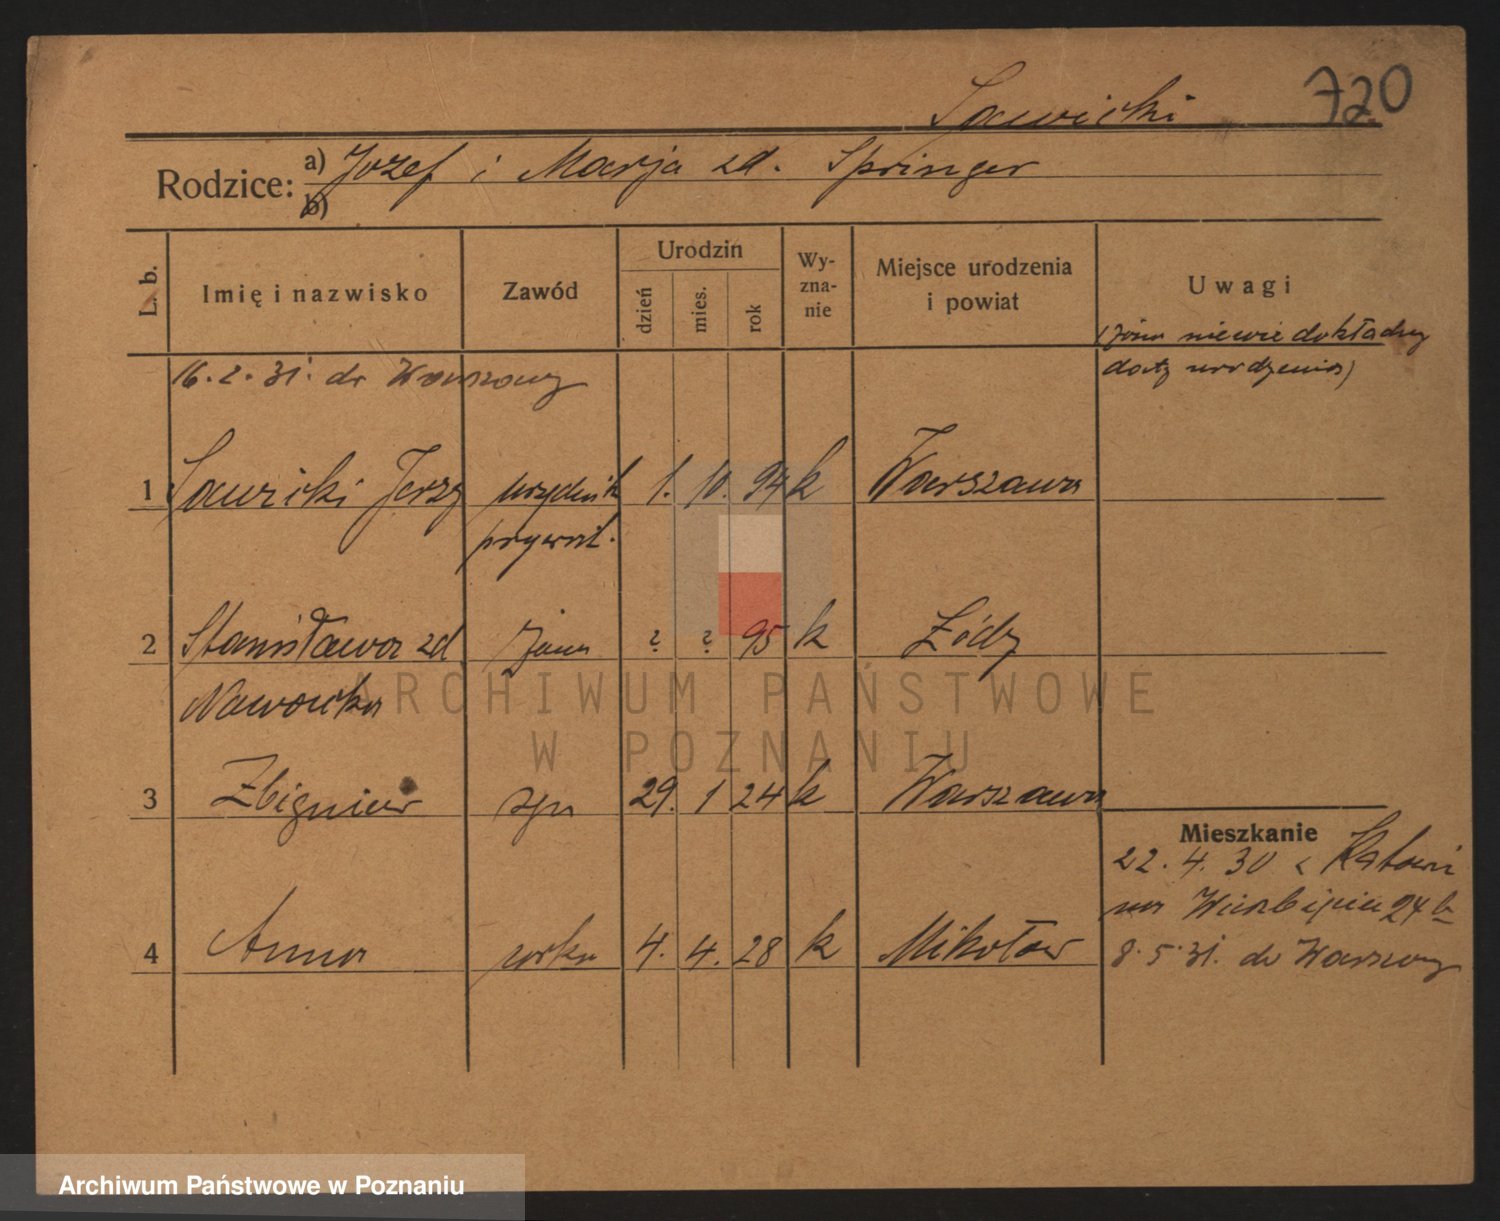 Sawicki 720
Rodzice: a) Józef i Marja zd. Springer
b)
L. b. Imię i nazwisko Zawód Urodzin dzień mies. rok Wy-zna-nie Miejsce urodzenia i powiat Uwagi
(żona niewie dokładny
16.2.31. do Warszawy daty urodzenia)
1 Sawicki Jerzy urzędnik 1. 10. 94 k Warszawa
prywat.
2 Stanisława zd. żona ? ? 95 k Łódź
Nawrocka
3 Zbigniew syn 29. 1 24 k Warszawa
Mieszkanie
22.4.30 z Katowic
na Wierzbięcice 24b
4 Anna córka 4. 4. 28 k Mikołów
8.5.31. do Warszawy
ARCHIWUM PAŃSTWOWE
W POZNANIU
Archiwum Państwowe w Poznaniu